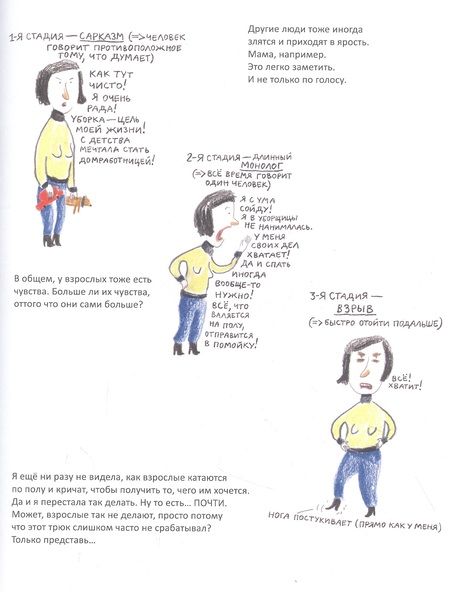 1-Я СТАДИЯ — САРКАЗМ (=> ЧЕЛОВЕК
ГОВОРИТ ПРОТИВОПОЛОЖНОЕ
ТОМУ, ЧТО ДУМАЕТ)
КАК ТУТ
ЧИСТО!
Я ОЧЕНЬ
РАДА!
УБОРКА — ЦЕЛЬ
МОЕЙ ЖИЗНИ!
С ДЕТСТВА
МЕЧТАЛА СТАТЬ
ДОМРАБОТНИЦЕЙ!
Другие люди тоже иногда
злятся и приходят в ярость.
Мама, например.
Это легко заметить.
И не только по голосу.
2-Я СТАДИЯ — ДЛИННЫЙ
МОНОЛОГ
(=> ВСЁ ВРЕМЯ ГОВОРИТ
ОДИН ЧЕЛОВЕК)
Я С УМА
СОЙДУ!
Я В УБОРЩИЦЫ
НЕ НАНИМАЛАСЬ.
У МЕНЯ
СВОИХ ДЕЛ
ХВАТАЕТ!
ДА И СПАТЬ
ИНОГДА
ВООБЩЕ-ТО
НУЖНО!
ВСЁ, ЧТО
ВАЛЯЕТСЯ
НА ПОЛУ,
ОТПРАВИТСЯ
В ПОМОЙКУ!
В общем, у взрослых тоже есть
чувства. Больше ли их чувства,
оттого что они сами больше?
3-Я СТАДИЯ —
ВЗРЫВ
(=> БЫСТРО ОТОЙТИ ПОДАЛЬШЕ)
ВСЁ!
ХВАТИТ!
НОГА ПОСТУКИВАЕТ (ПРЯМО КАК У МЕНЯ)
Я ещё ни разу не видела, как взрослые катаются
по полу и кричат, чтобы получить то, чего им хочется.
Да и я перестала так делать. Ну то есть... ПОЧТИ.
Может, взрослые так не делают, просто потому
что этот трюк слишком часто не срабатывал?
Только представь...